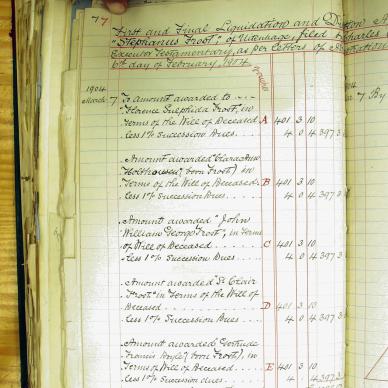 77
First and Final Liquidation and
"Stephanus Trost", of Uitenhage, filed Charles
Executor Testamentary, as per letters of
6th day of February, 1904.
1904
March 7
To Amount awarded to
Florence Sulphida Trost, in
terms of the Will of Deceased A 401 3 10
less 1% Succession Dues. 4 0 4 397 3
Amount awarded Clara Ann
Holthousen (born Trost) in
Terms of the Will of Deceased. B 401 3 10
less 1% Succession Dues 4 0 4 397 3
Amount awarded "John
William George Trost", in terms
of Will of Deceased C 401 3 10
less 1% Succession Dues 4 0 4 397 3
Amount awarded "St Clair
Trost" in Terms of the Will of
Deceased D 401 3 10
less 1% Succession Dues 4 0 4 397 3
Amount awarded Gertrude
Francis (born Trost), in
Terms of Will of Deceased E 401 3 10
less 1% Succession dues 4 0 4 397 3